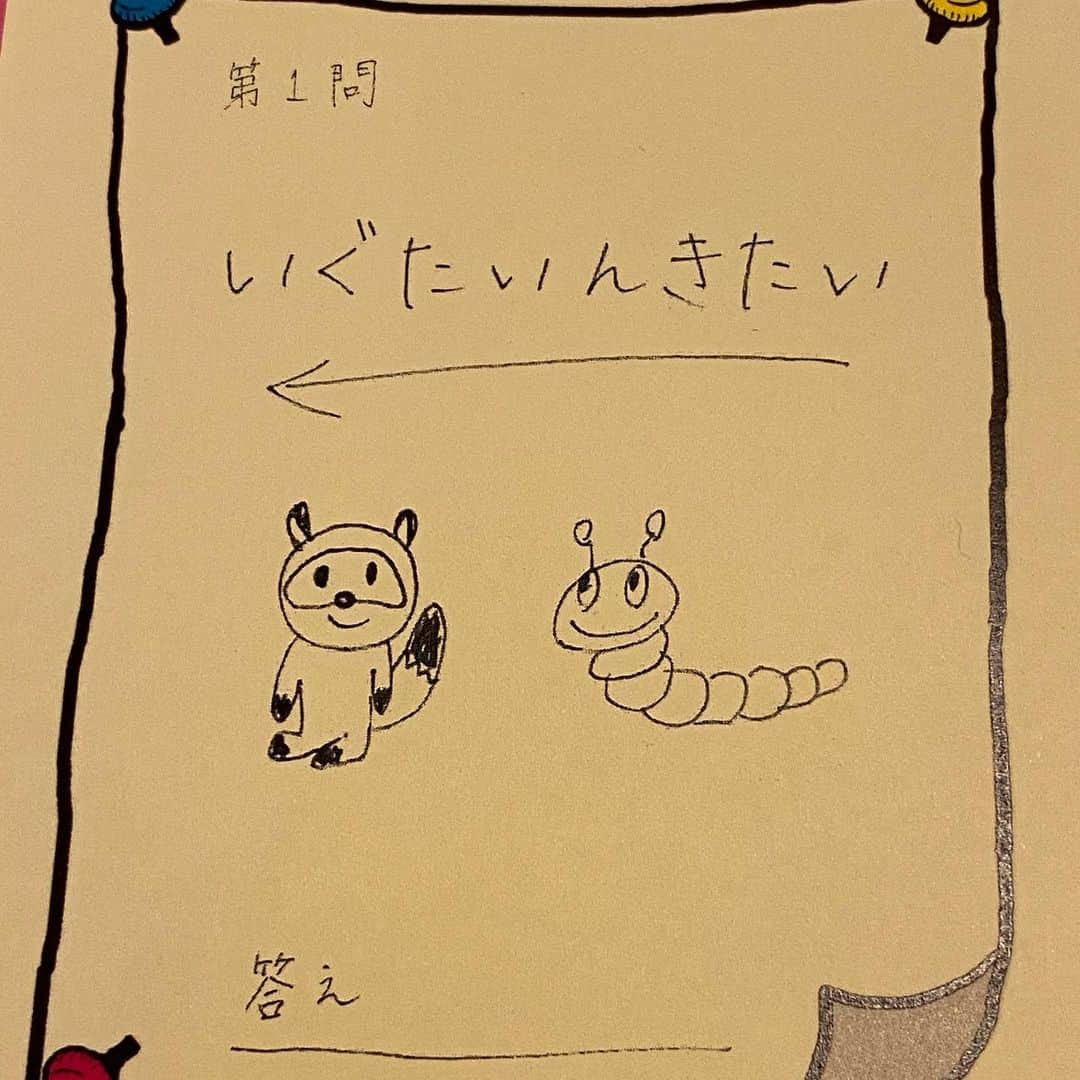 第1問
いぐたいんきたい
答え